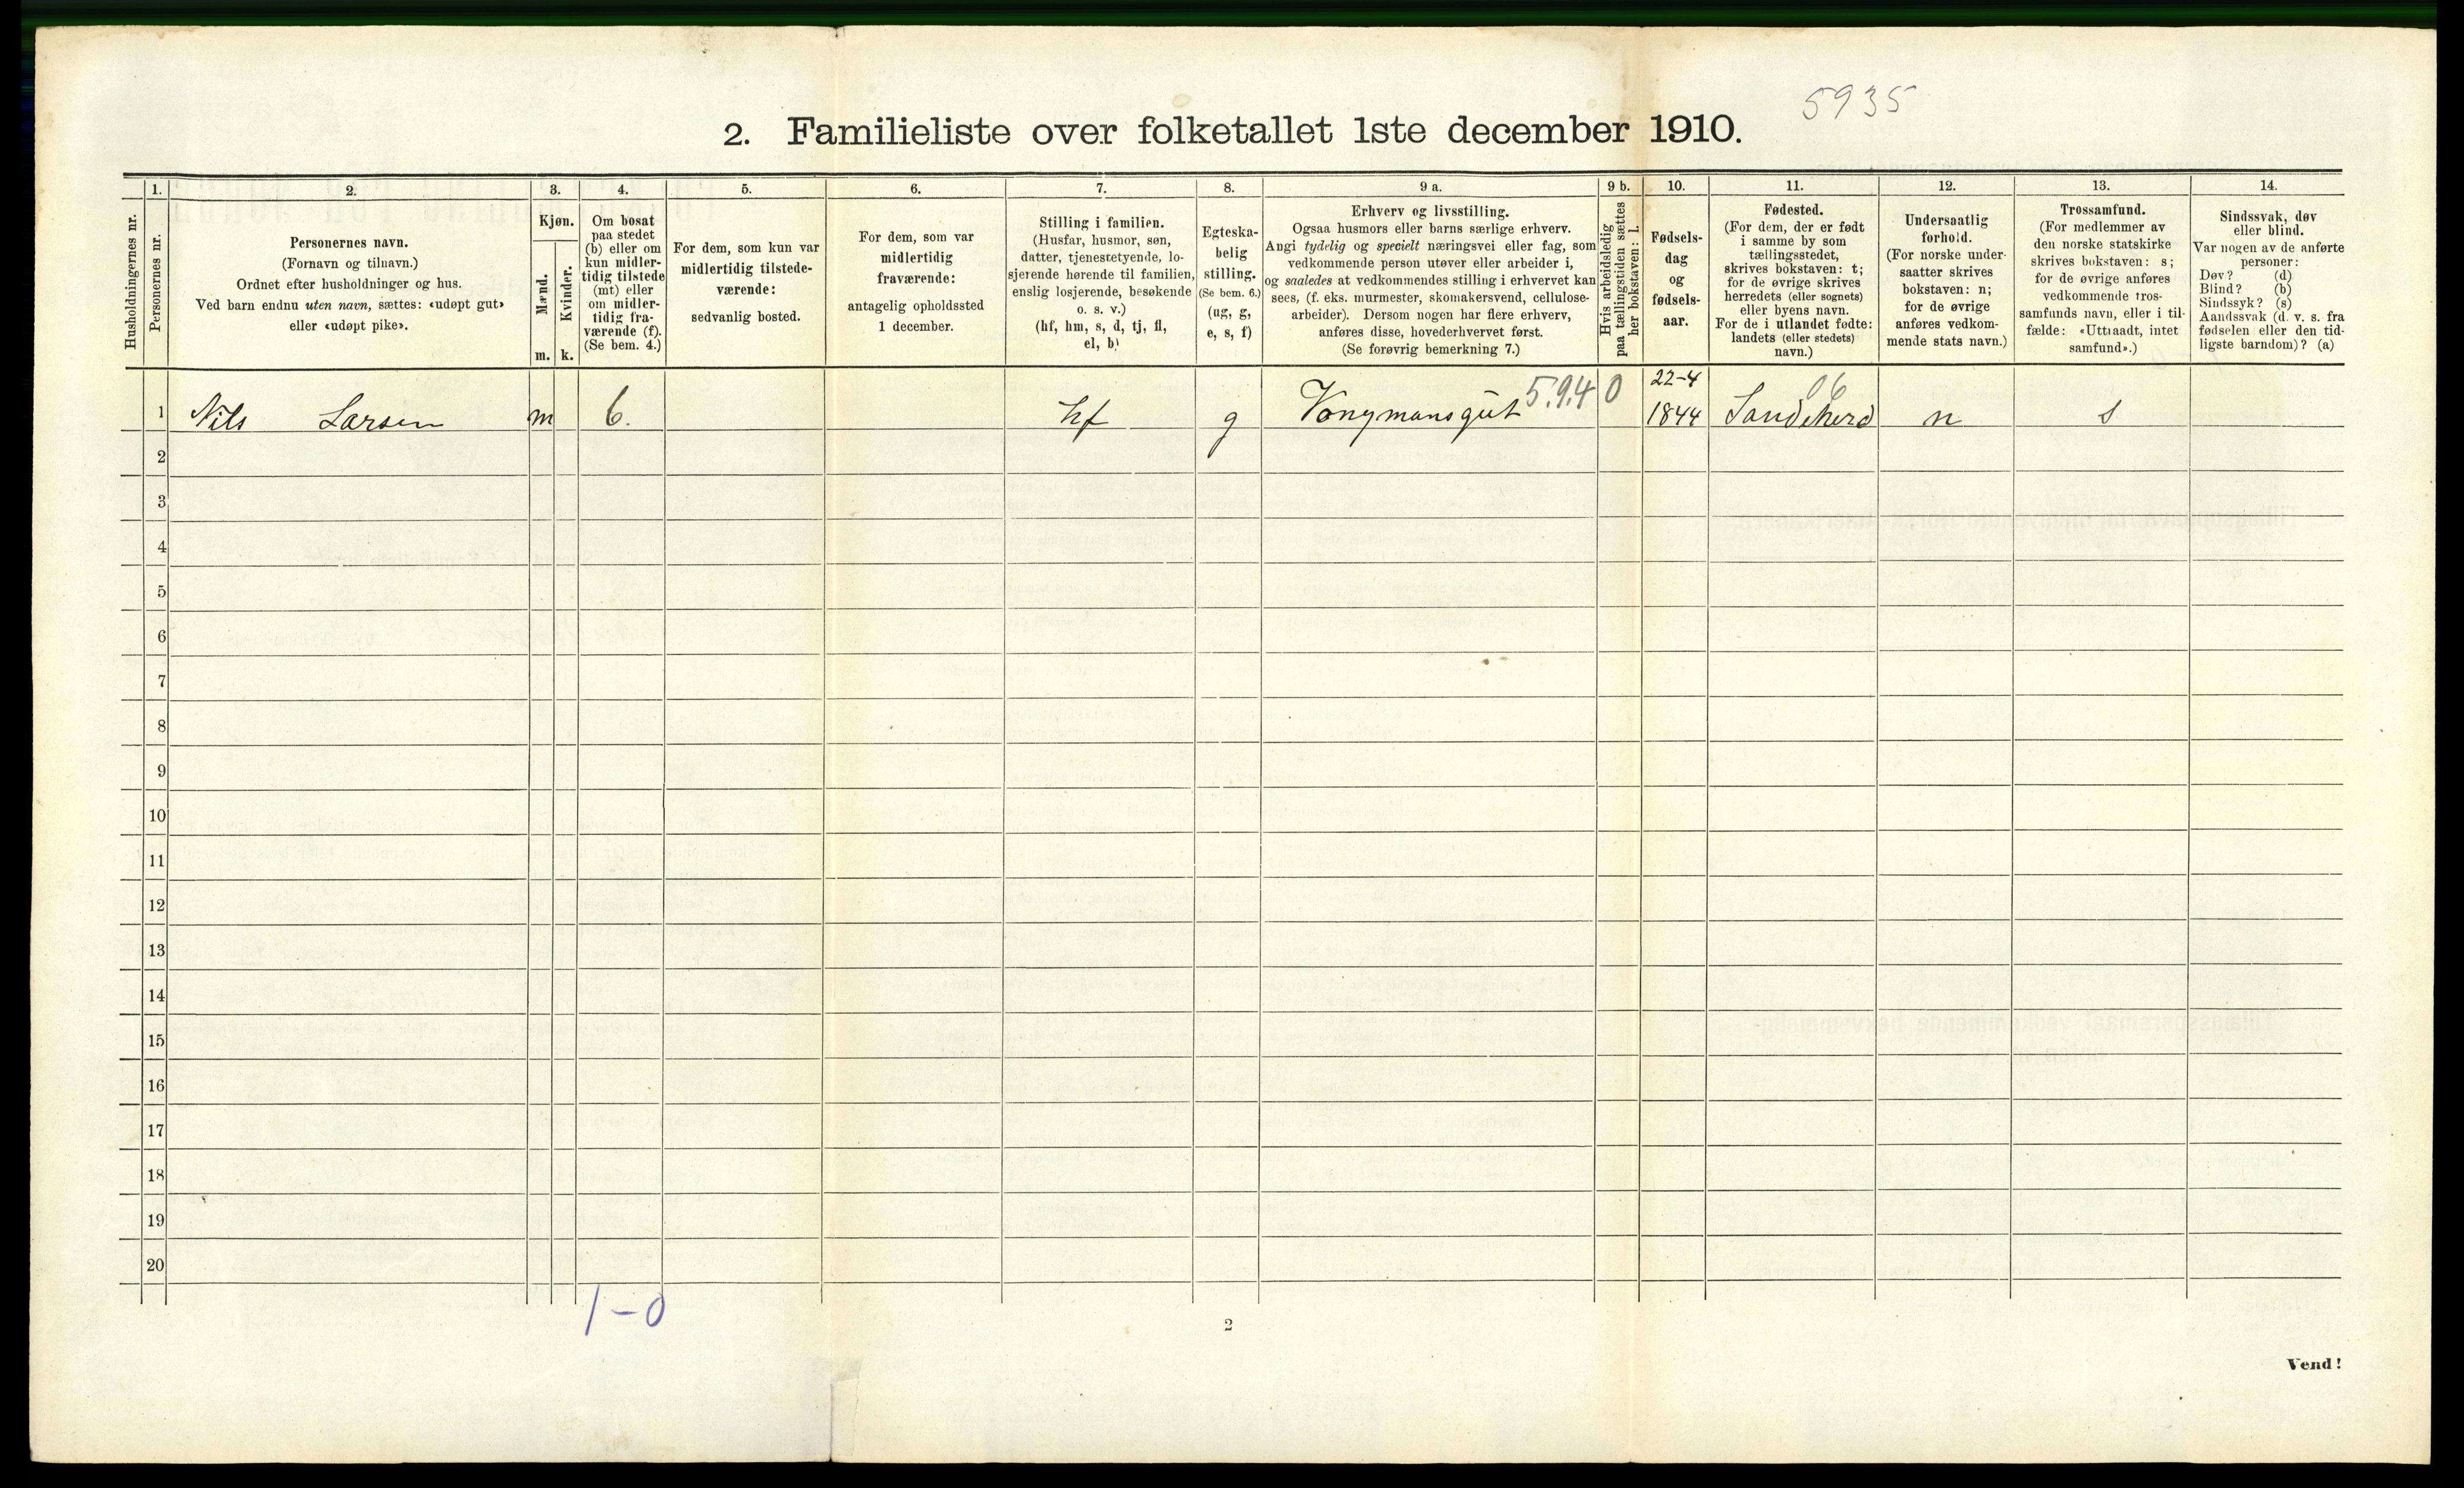 5935
2. Familieliste over folketallet 1ste december 1910.
Husholdningernes nr.
1.
Personernes nr.
2.
Personernes navn.
(Fornavn og tilnavn.)
Ordnet efter husholdninger og hus.
Ved barn endnu uten navn, sættes: «udøpt gut»
eller «udøpt pike».
3.
Kjøn.
Mænd.
Kvinder.
m. k.
4.
Om bosat
paa stedet
(b) eller om
kun midler-
tidig tilstede
(mt) eller
om midler-
tidig fra-
værende (f).
(Se bem. 4.)
5.
For dem, som kun var
midlertidig tilstede-
værende:
sedvanlig bosted.
6.
For dem, som var
midlertidig
fraværende:
antagelig opholdssted
1 december.
7.
Stilling i familien.
(Husfar, husmor, søn,
datter, tjenestetyende, lo-
sjerende hørende til familien,
enslig losjerende, besøkende
o. s. v.)
(hf, hm, s, d, tj, fl,
el, b)
8.
Egteska-
belig
stilling.
(Se bem. 6.)
(ug, g,
e, s, f)
9 a.
Erhverv og livsstilling.
Ogsaa husmors eller barns særlige erhverv.
Angi tydelig og specielt næringsvei eller fag, som
vedkommende person utøver eller arbeider i,
og saaledes at vedkommendes stilling i erhvervet kan
sees, (f. eks. murmester, skomakersvend, cellulose-
arbeider). Dersom nogen har flere erhverv,
anføres disse, hovederhvervet først.
(Se forøvrig bemerkning 7.)
9 b.
Hvis arbeidsledig
paa tællingstiden sættes
her bokstaven: l.
10.
Fødsels-
dag
og
fødsels-
aar.
11.
Fødested.
(For dem, der er født
i samme by som
tællingsstedet,
skrives bokstaven: t;
for de øvrige skrives
herredets (eller sognets)
eller byens navn.
For de i utlandet fødte:
landets (eller stedets)
navn.)
12.
Undersaatlig
forhold.
(For norske under-
saatter skrives
bokstaven: n;
for de øvrige
anføres vedkom-
mende stats navn.)
13.
Trossamfund.
(For medlemmer av
den norske statskirke
skrives bokstaven: s;
for de øvrige anføres
vedkommende tros-
samfunds navn, eller i til-
fælde: «Uttraadt, intet
samfund».)
14.
Sindssvak, døv
eller blind.
Var nogen av de anførte
personer:
Døv? (d)
Blind? (b)
Sindssyk? (s)
Aandssvak (d. v. s. fra
fødselen eller den tid-
ligste barndom)? (a)
5.9.4 0 22-4 06
1 Nils Larsen m b. hf g 1844 n s
2
3
4
5
6
7
8
9
10
11
12
13
14
15
16
17
18
19
20
1-0
2
Vend!